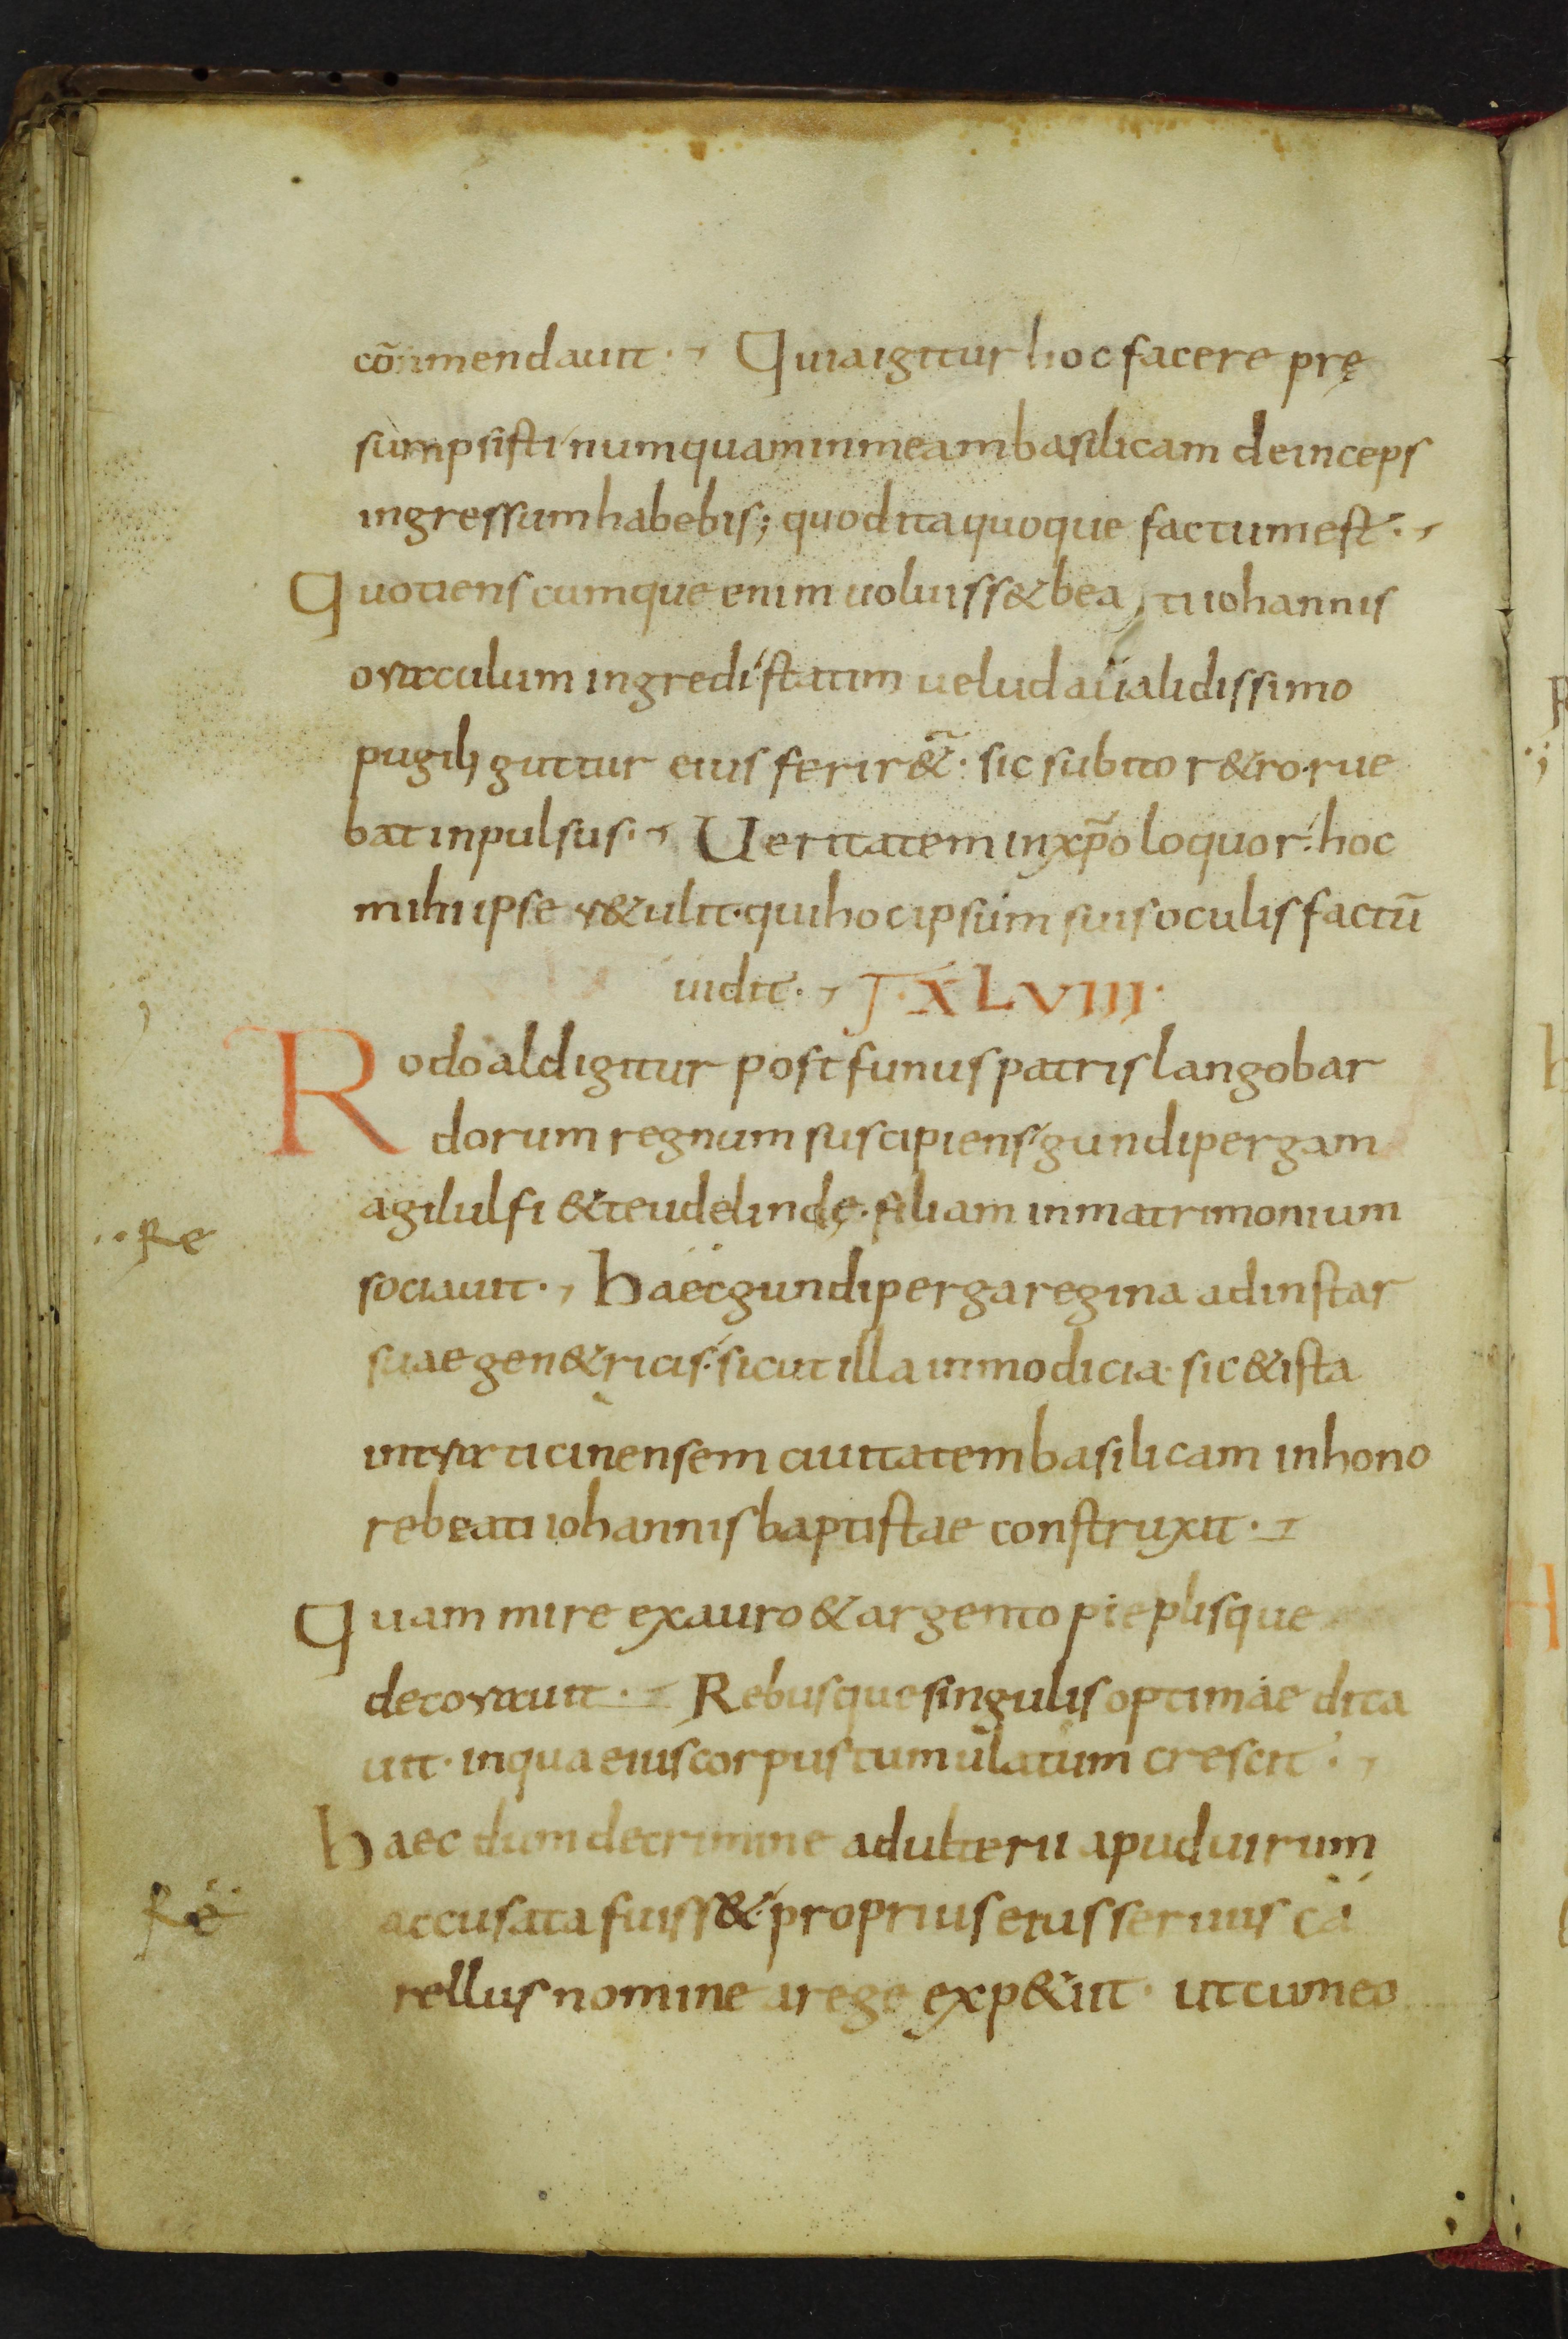 cõmmendauit · Quia igitur hoc facere prę
sumpsisti numquam in meam basilicam deinceps
ingressum habebis; quod ita quoque factum est ·
Quotienscumque enim uoluiss& beati iohannis
oraculum ingredi statim uelud a ualidissimo
pugili guttur eius ferir&̃ · sic subito r&ro rue
bat inpulsus · Ueritatem in xp̃o loquor · hoc
mihi ipse r&ulit · qui hoc ipsum suis oculis factũ
uidit · XLVIII ·
Rodoald igitur post funus patris langobar
dorum regnum suscipiens gundipergam
agilulfi & teudelindę · filiam in matrimonium
Re
sociauit · Haec gundiperga regina ad instar
suae gen&ricis · sicut illa in modicia · sic & ista
intra ticinensem ciuitatem basilicam in hono
re beati iohannis baptistae construxit ·
Quam mire ex auro & argento pieplisque
decorauit · Rebusque singulis optimae dita
uit · in qua eius corpus tumulatum crescit ·
Haec dum de crimine adulterii apud uirum
Re
accusata fuiss& · proprius eius seruus ca
rellus nomine a rege exp&iit · ut cum eo